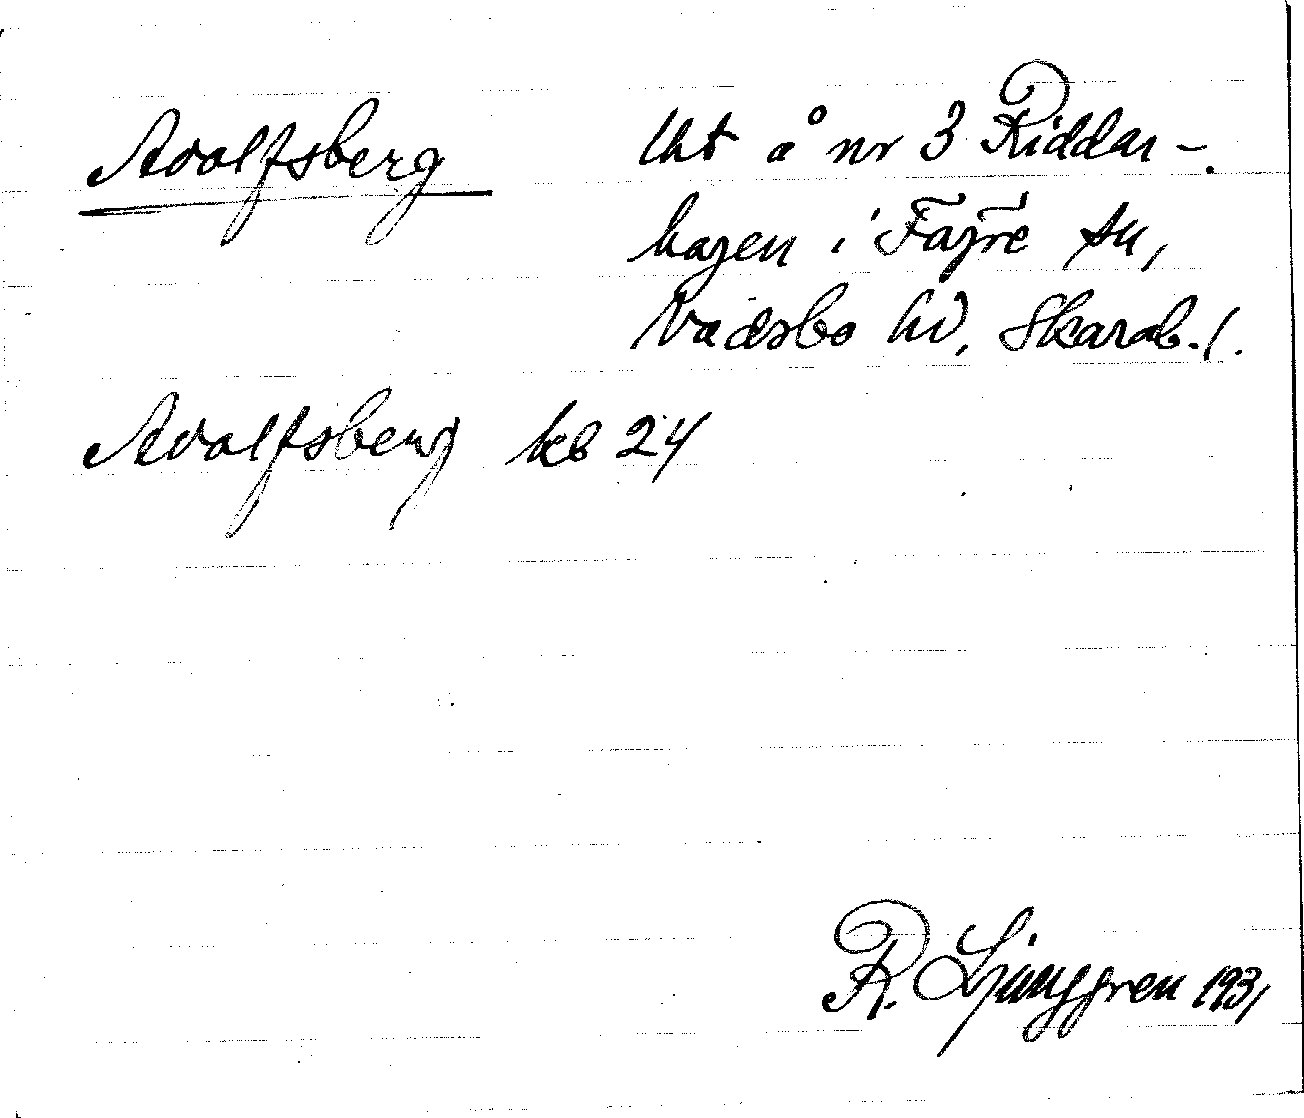 Adolfsberg
Lht å nr 3 Riddar-
hagen i Fägre sn,
Vadsbo hd, Skarab. l.
Adolfsberg kb 24
R. Ljunggren 1931